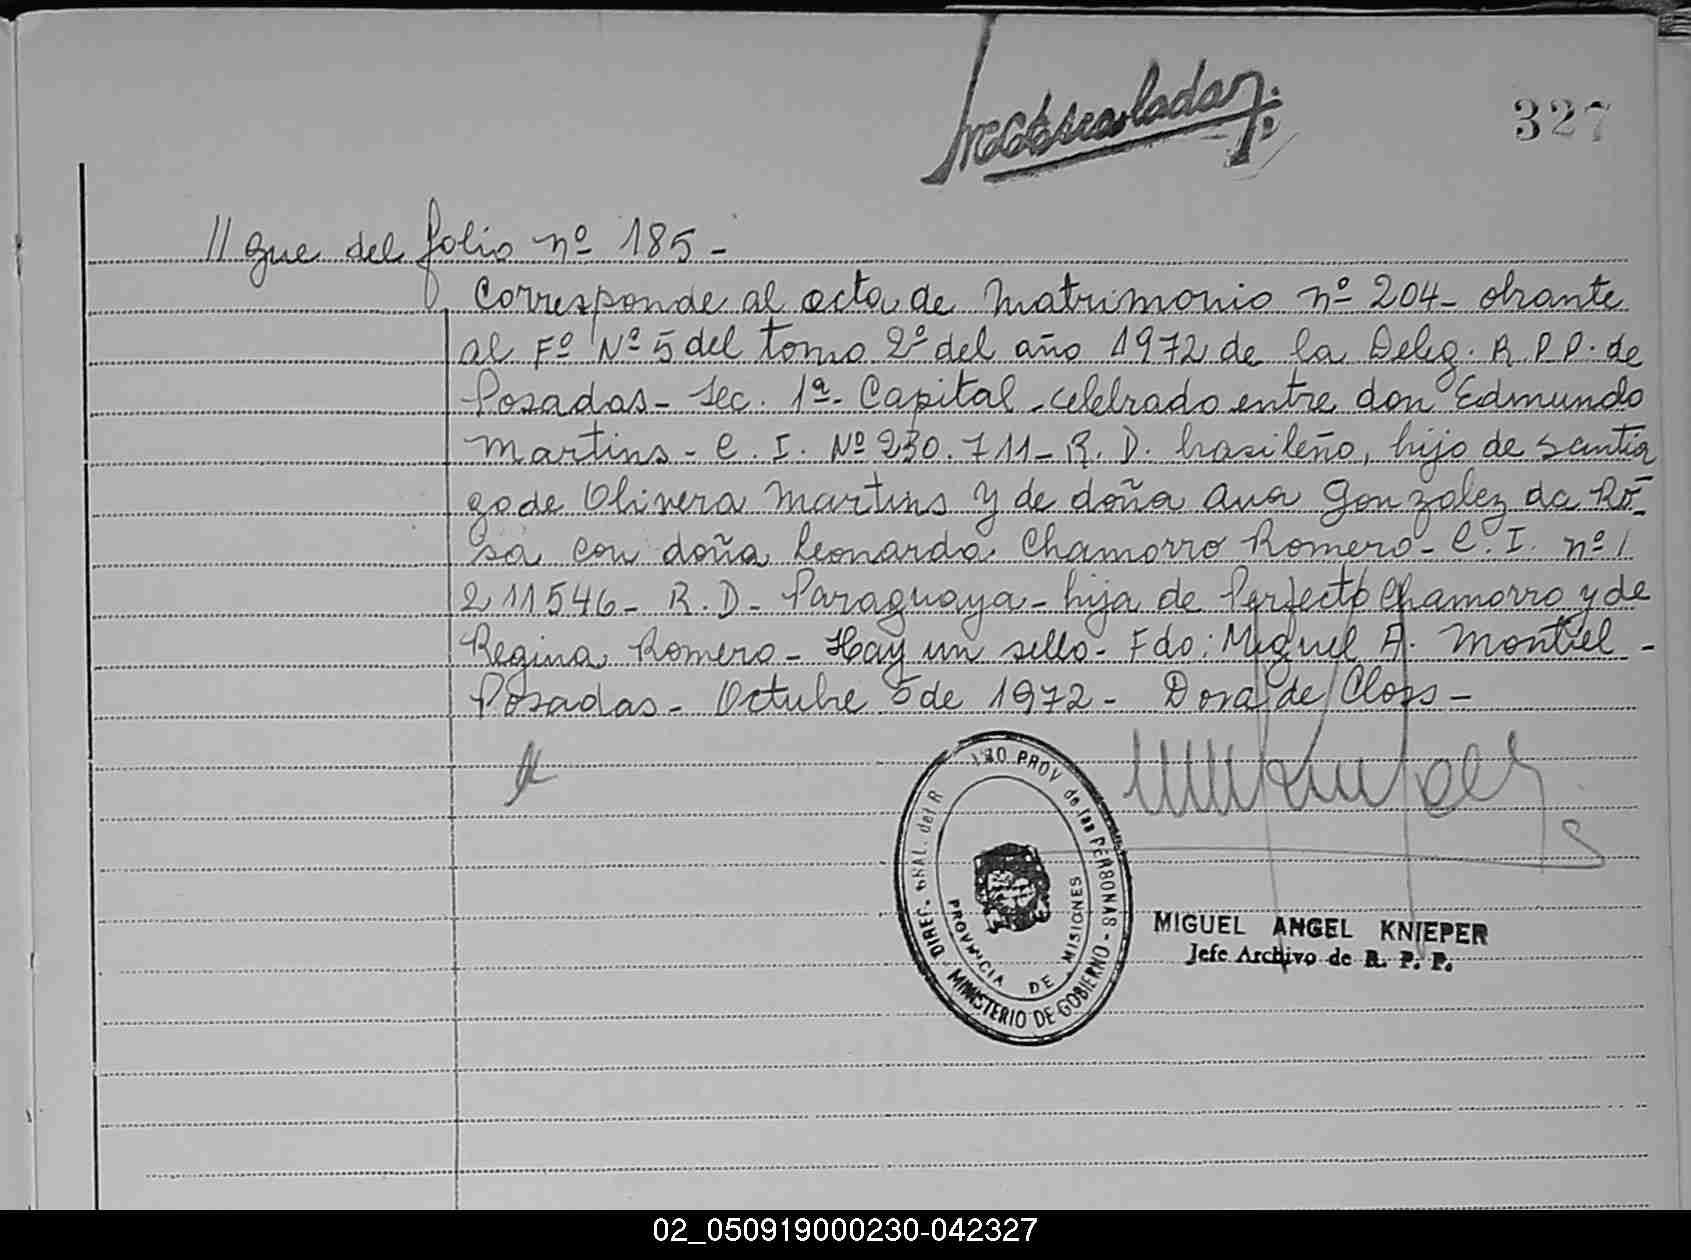 327
//gue del folio nº 185 -
Corresponde al acta de Matrimonio nº 204 - obrante
al Fº Nº 5 del tomo 2º del año 1972 de la Deleg. R. P. P. de
Posadas - Sec. 1ª - Capital - celebrado entre don Edmundo
Martins - C. I. Nº 230.711 - R. D. brasileño, hijo de Santia
go de Olivera Martins y de doña Ana Gonzalez da Ro-
sa con doña Leonarda Chamorro Romero - C. I. nº 1
211546 - R. D. - Paraguaya - hija de Perfecto Chamorro y de
Regina Romero - Hay un sello - Fdo: Miguel A. Montiel -
Posadas - Octubre 5 de 1972 - Dora de Closs -
DIREC. GRAL. del R PROV de las PERSONAS - MINISTERIO DE GOBIERNO
PROVINCIA DE MISIONES
MIGUEL ANGEL KNIEPER
Jefe Archivo de R. P. P.
02_050919000230-042327